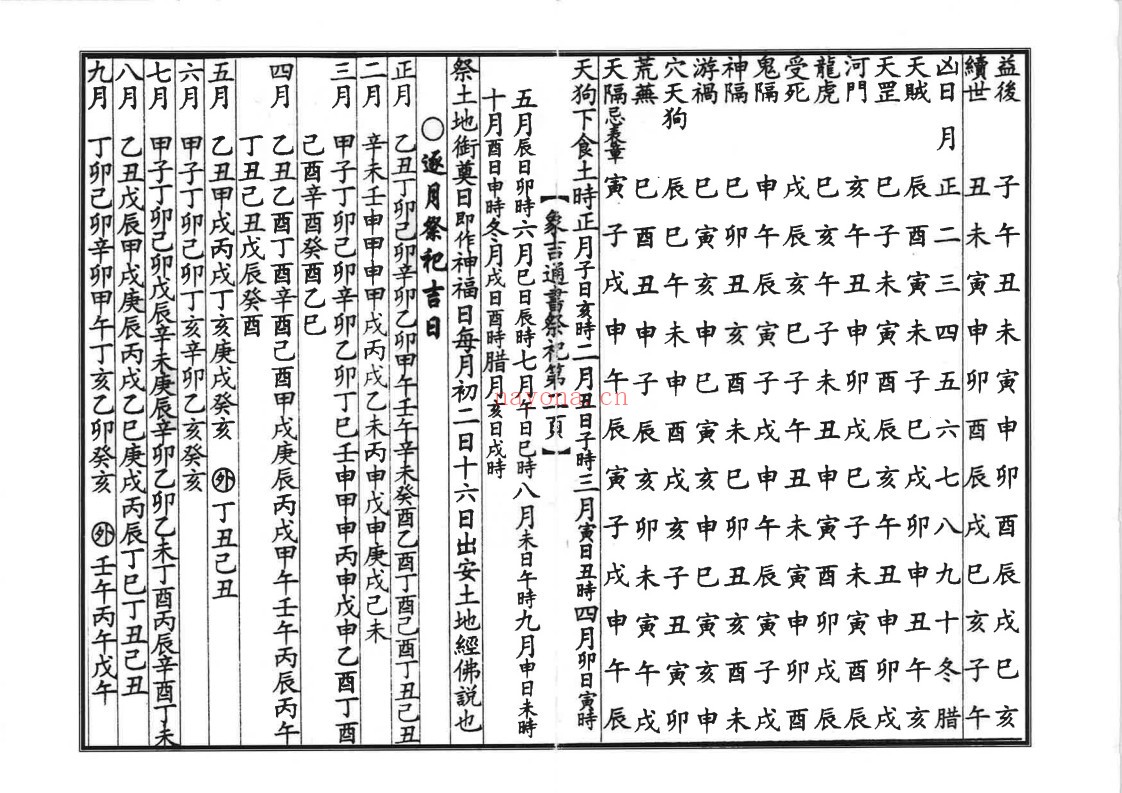 益後 子午丑未寅申卯酉辰戌巳亥
續世 丑未寅申卯酉辰戌巳亥子午
凶日 月 正二三四五六七八九十冬腊
天賊 辰酉寅未子巳戌卯申丑午亥
天罡 巳子未寅酉辰亥午丑申卯戌
河門 亥午丑申卯戌巳子未寅酉辰
龍虎 巳亥午子未丑申寅酉卯戌辰
受死 戌辰亥巳子午丑未寅申卯酉
鬼隔 申午辰寅子戌申午辰寅子戌
神隔 巳卯丑亥酉未巳卯丑亥酉未
游禍 巳寅亥申巳寅亥申巳寅亥申
穴天狗 辰巳午未申酉戌亥子丑寅卯
荒蕪 巳酉丑申子辰亥卯未寅午戌
天隔忌表章 寅子戌申午辰寅子戌申午辰
天狗下食土時正月子日亥時二月丑日子時三月寅日丑時四月卯日寅時
【象吉通書祭祀第二頁】
五月辰日卯時六月巳日辰時七月午日巳時八月未日午時九月申日未時
十月酉日申時冬月戌日酉時腊月亥日戌時
祭土地衙奠日即作神福日每月初二日十六日出安土地經佛説也
○逐月祭祀吉日
正月 乙丑丁卯己卯辛卯乙卯甲午壬午辛未癸酉乙酉丁酉己酉丁丑己丑
二月 辛未壬申甲申甲戌丙戌乙未丙申戊申庚戌己未
三月 甲子丁卯己卯辛卯乙卯丁巳壬申甲申丙申戊申乙酉丁酉
己酉辛酉癸酉乙巳
四月 乙丑乙酉丁酉辛酉己酉甲戌庚辰丙戌甲午壬午丙辰丙午
丁丑己丑戊辰癸酉
五月 乙丑甲戌丙戌丁亥庚戌癸亥 外 丁丑己丑
六月 甲子丁卯己卯丁亥辛卯乙亥癸亥
七月 甲子丁卯己卯戊辰辛未庚辰辛卯乙卯乙未丁酉丙辰辛酉丁未
八月 乙丑戊辰甲戌庚辰丙戌乙巳庚戌丙辰丁巳丁丑己丑
九月 丁卯己卯辛卯甲午丁亥乙卯癸亥 外 壬午丙午戊午
nayona.cn